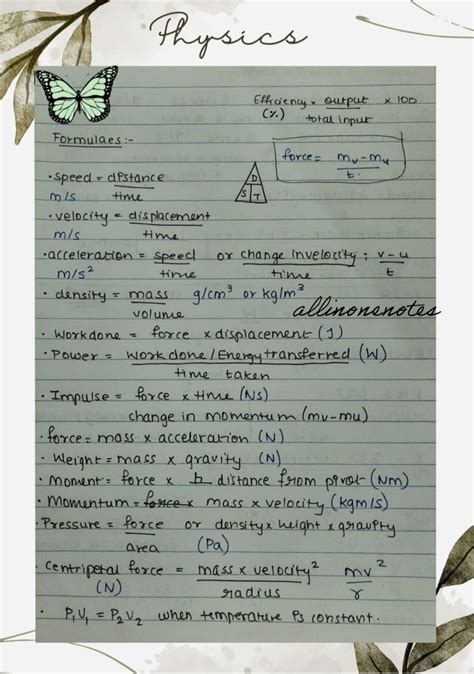 Physics
Efficiency = output × 100
(%) total input
Formulaes:-
force = mv - mu
t
D
S T
• speed = distance
m/s time
• velocity = displacement
m/s time
• acceleration = speed or change in velocity ; v-u
m/s² time time t
• density = mass g/cm³ or kg/m³
volume
allinonenotes
• Workdone = force × displacement (J)
• Power = work done / Energy transferred (W)
time taken
• Impulse = force × time (Ns)
change in momentum (mv-mu)
• force = mass × acceleration (N)
• Weight = mass × gravity (N)
• Moment = force × h distance from pivot (Nm)
• Momentum = force × mass × velocity (kgm/s)
• Pressure = force or density × height × gravity
area (Pa)
• Centripetal force = mass × velocity² mv²
(N) radius r
• P₁V₁ = P₂V₂ when temperature is constant.